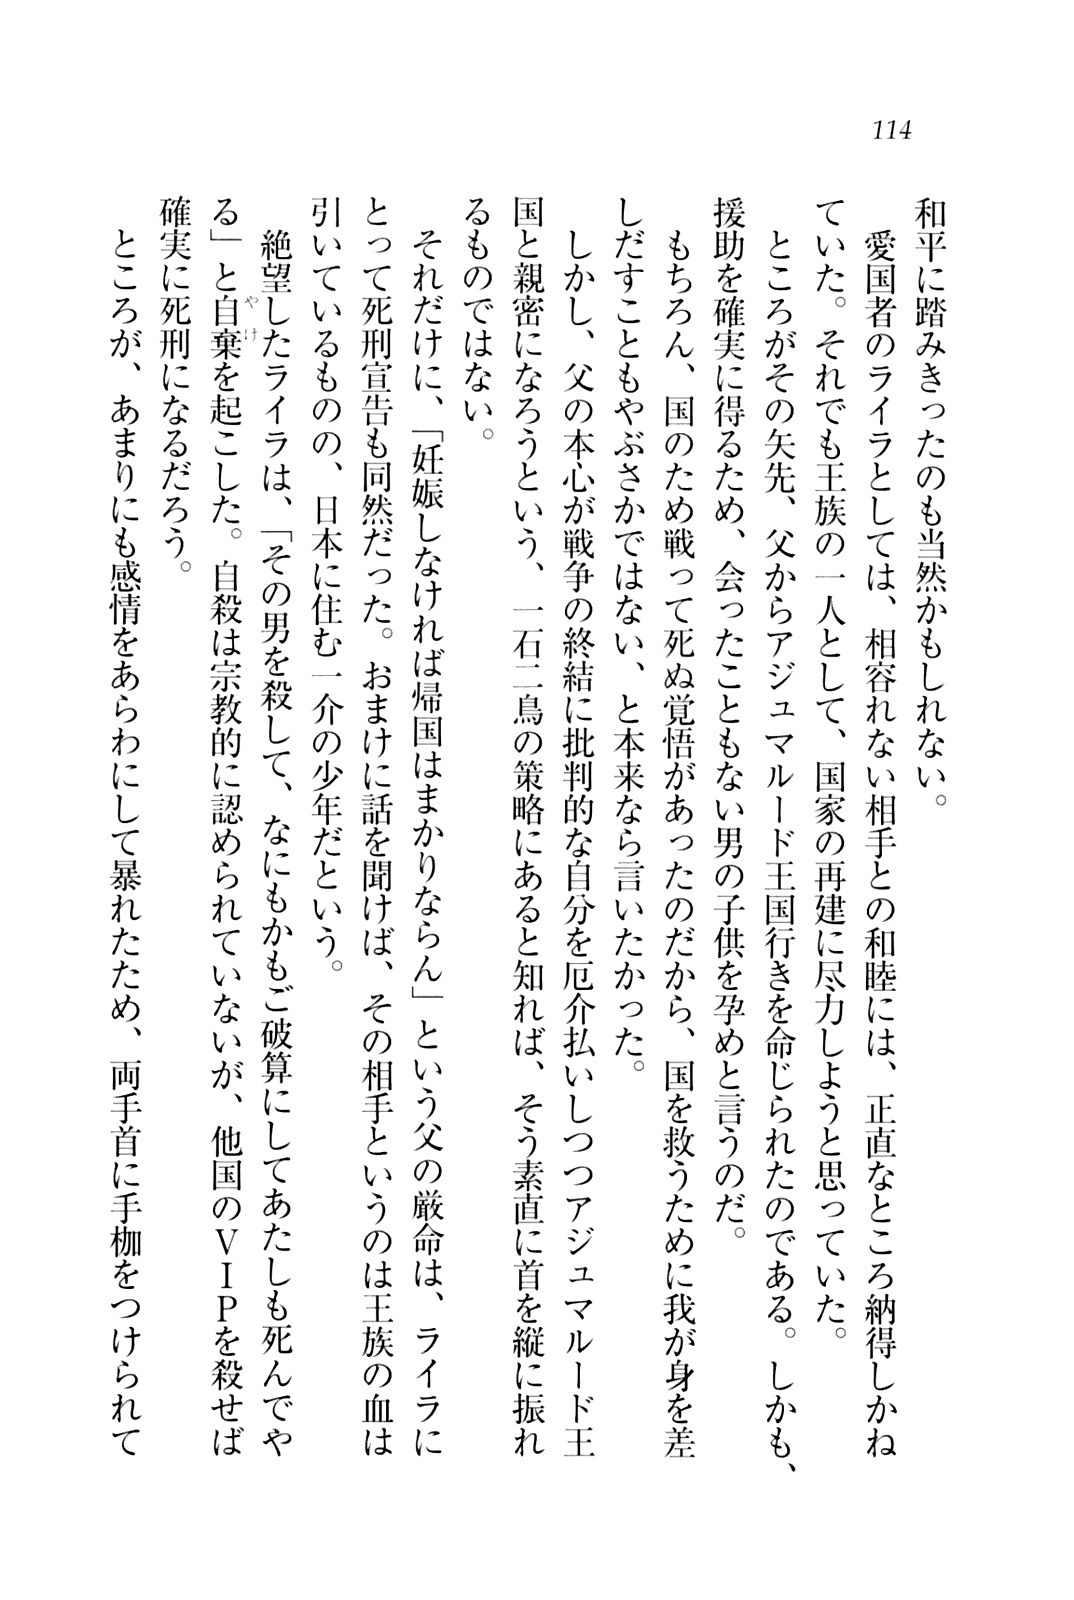 114
和平に踏みきったのも当然かもしれない。
愛国者のライラとしては、相容れない相手との和睦には、正直なところ納得しかね
ていた。それでも王族の一人として、国家の再建に尽力しようと思っていた。
ところがその矢先、父からアジュマルード王国行きを命じられたのである。しかも、
援助を確実に得るため、会ったこともない男の子供を孕めと言うのだ。
もちろん、国のため戦って死ぬ覚悟があったのだから、国を救うために我が身を差
しだすこともやぶさかではない、と本来なら言いたかった。
しかし、父の本心が戦争の終結に批判的な自分を厄介払いしつつアジュマルード王
国と親密になろうという、一石二鳥の策略にあると知れば、そう素直に首を縦に振れ
るものではない。
それだけに、「妊娠しなければ帰国はまかりならん」という父の厳命は、ライラに
とって死刑宣告も同然だった。おまけに話を聞けば、その相手というのは王族の血は
引いているものの、日本に住む一介の少年だという。
絶望したライラは、「その男を殺して、なにもかもご破算にしてあたしも死んでや
る」と自棄を起こした。自殺は宗教的に認められていないが、他国のＶＩＰを殺せば
やけ
確実に死刑になるだろう。
ところが、あまりにも感情をあらわにして暴れたため、両手首に手枷をつけられて